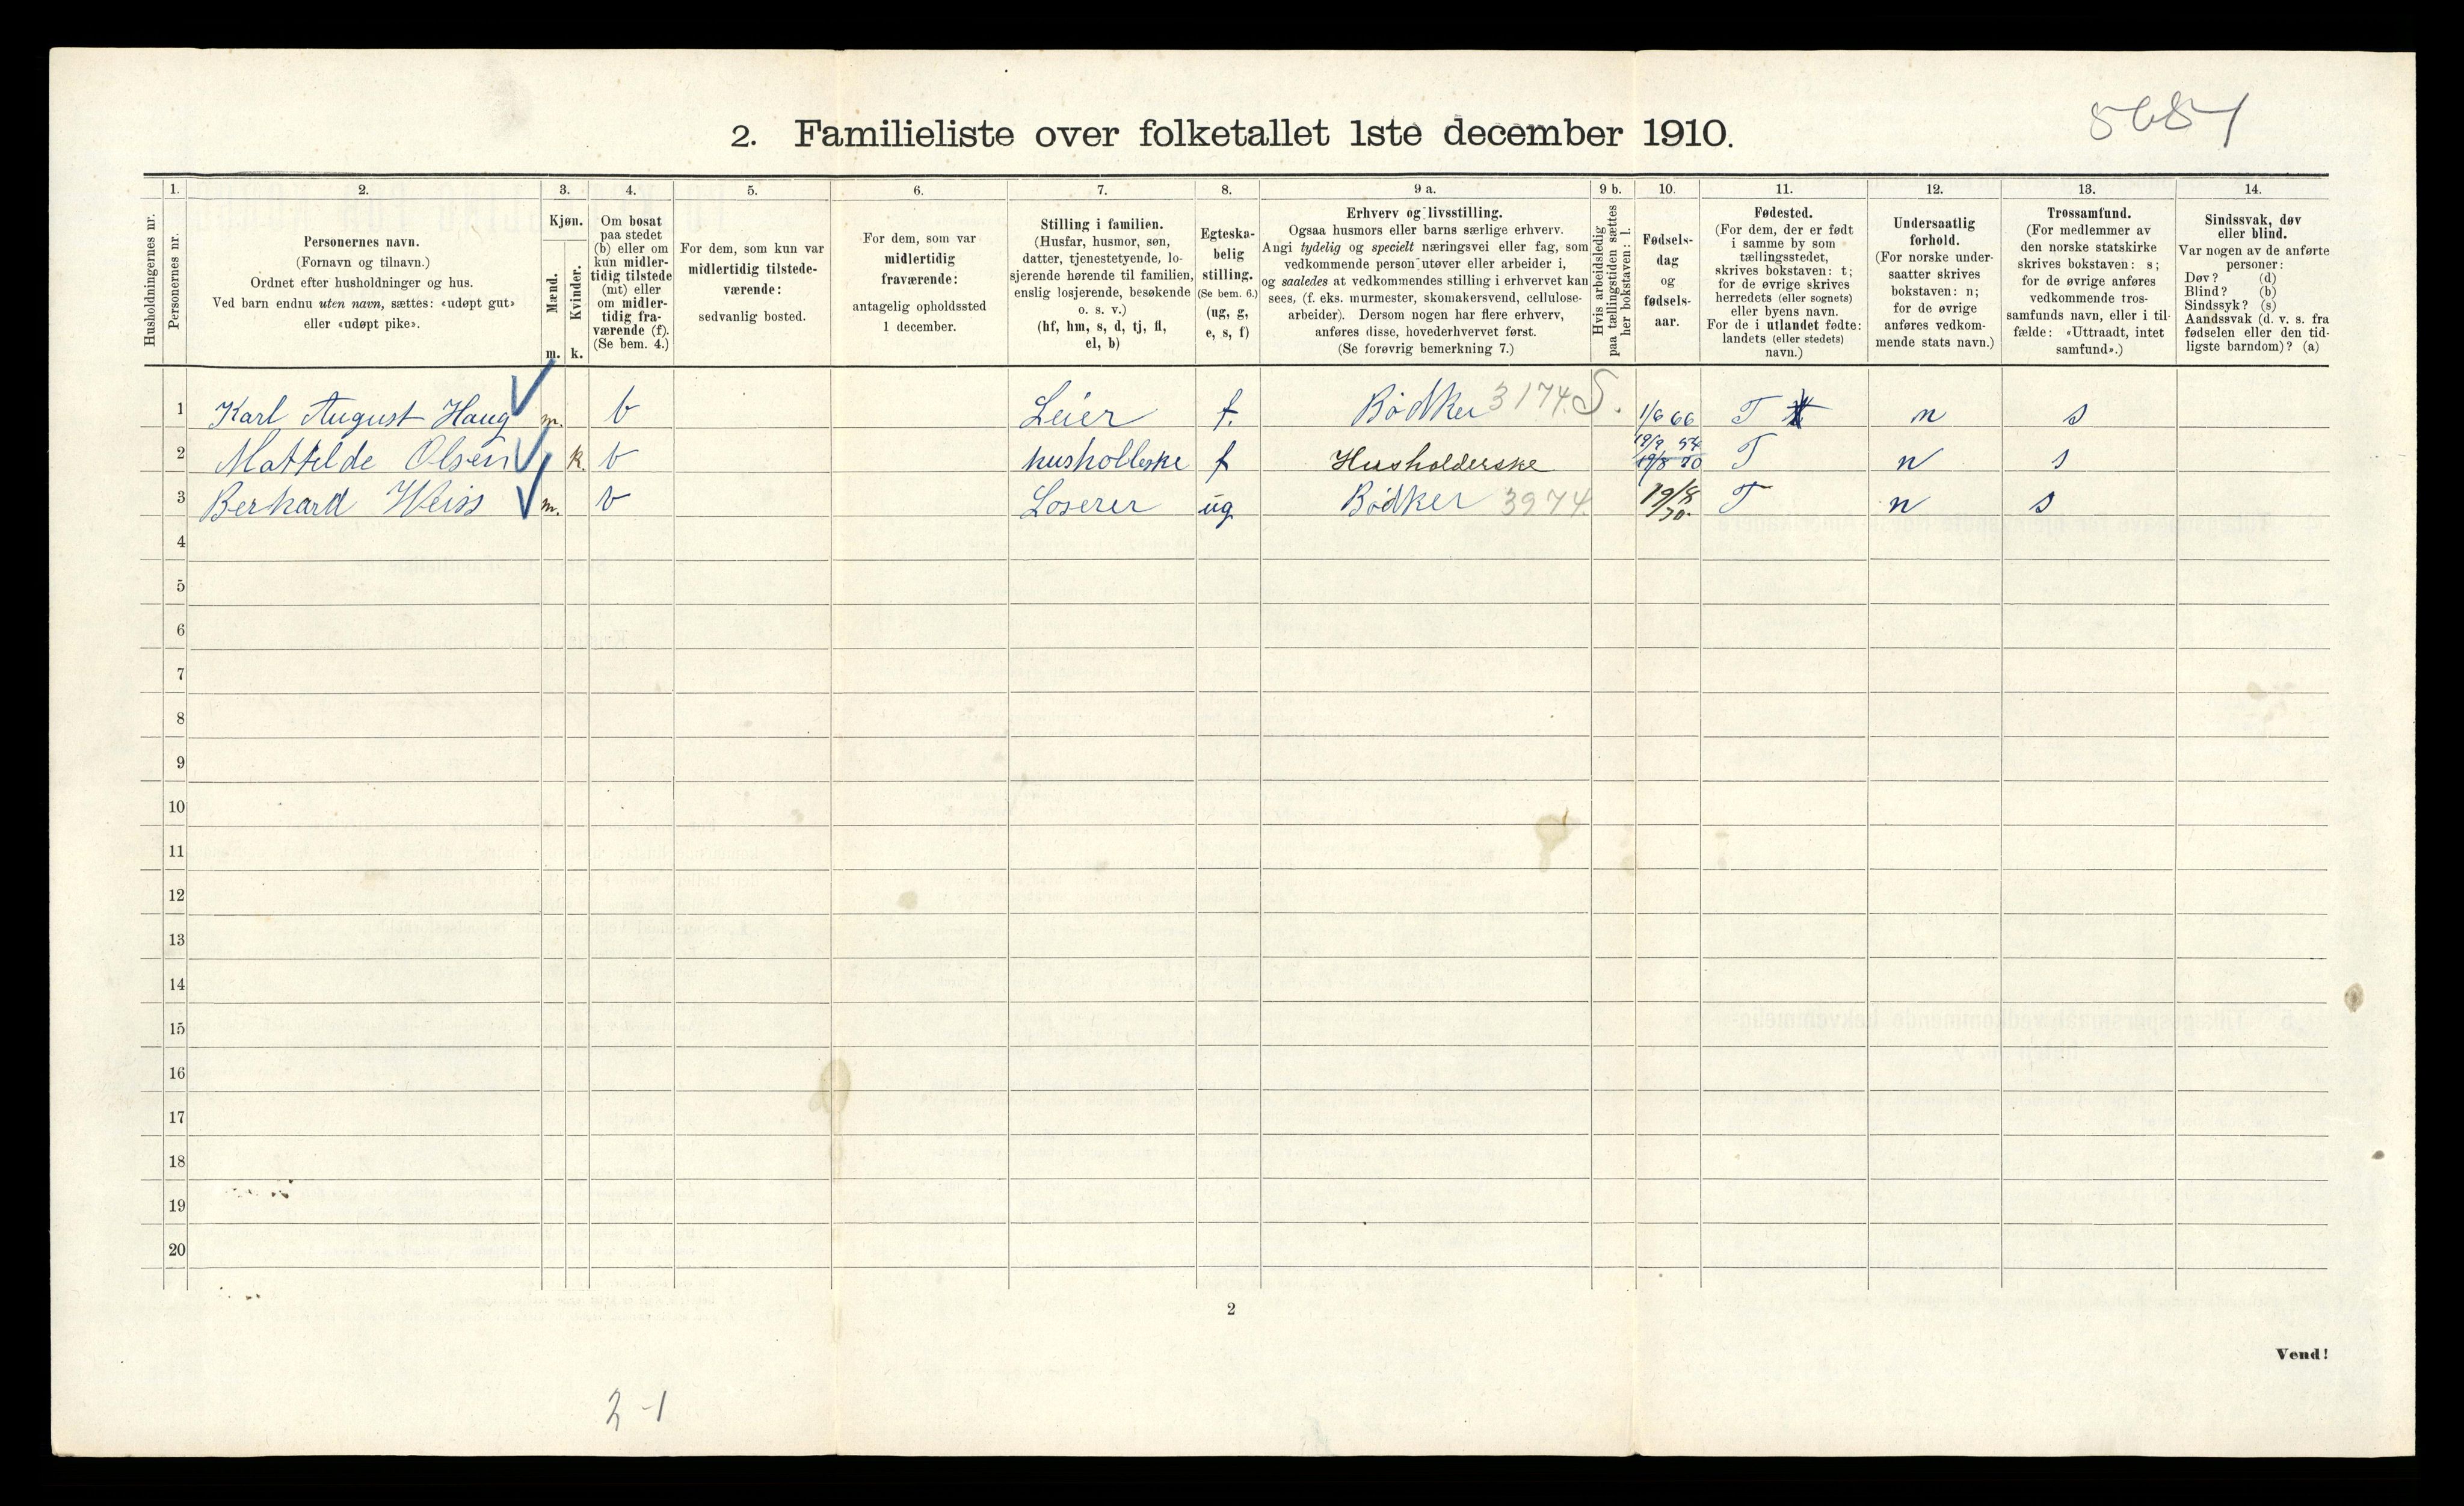 5687
2. Familieliste over folketallet 1ste december 1910.
Husholdningernes nr.
1.
Personernes nr.
2.
Personernes navn.
(Fornavn og tilnavn.)
Ordnet efter husholdninger og hus.
Ved barn endnu uten navn, sættes: «udøpt gut»
eller «udøpt pike».
3.
Kjøn.
Mænd.
m.
Kvinder.
k.
4.
Om bosat
paa stedet
(b) eller om
kun midler-
tidig tilstede
(mt) eller
om midler-
tidig fra-
værende (f).
(Se bem. 4.)
5.
For dem, som kun var
midlertidig tilstede-
værende:
sedvanlig bosted.
6.
For dem, som var
midlertidig
fraværende:
antagelig opholdssted
1 december.
7.
Stilling i familien.
(Husfar, husmor, søn,
datter, tjenestetyende, lo-
sjerende hørende til familien,
enslig losjerende, besøkende
o. s. v.)
(hf, hm, s, d, tj, fl,
el, b)
8.
Egteska-
belig
stilling.
(Se bem. 6.)
(ug, g,
e, s, f)
9 a.
Erhverv og livsstilling.
Ogsaa husmors eller barns særlige erhverv.
Angi tydelig og specielt næringsvei eller fag, som
vedkommende person utøver eller arbeider i,
og saaledes at vedkommendes stilling i erhvervet kan
sees, (f. eks. murmester, skomakersvend, cellulose-
arbeider). Dersom nogen har flere erhverv,
anføres disse, hovederhvervet først.
(Se forøvrig bemerkning 7.)
9 b.
Hvis arbeidsledig
paa tællingstiden sættes
her bokstaven: l.
10.
Fødsels-
dag
og
fødsels-
aar.
11.
Fødested.
(For dem, der er født
i samme by som
tællingsstedet,
skrives bokstaven: t;
for de øvrige skrives
herredets (eller sognets)
eller byens navn.
For de i utlandet fødte:
landets (eller stedets)
navn.)
12.
Undersaatlig
forhold.
(For norske under-
saatter skrives
bokstaven: n;
for de øvrige
anføres vedkom-
mende stats navn.)
13.
Trossamfund.
(For medlemmer av
den norske statskirke
skrives bokstaven: s;
for de øvrige anføres
vedkommende tros-
samfunds navn, eller i til-
fælde: «Uttraadt, intet
samfund».)
14.
Sindssvak, døv
eller blind.
Var nogen av de anførte
personer:
Døv? (d)
Blind? (b)
Sindssyk? (s)
Aandssvak (d. v. s. fra
fødselen eller den tid-
ligste barndom)? (a)
1 Karl August Haug m. b Leier f. Bødker 3174. S. 1/6 66 T t n s
2 Mathilde Olsen k. b husholleske f Husholderske 19/9 54 19/8 50 T n s
3 Berhard Weiss m. b Loserer ug Bødker 3974 19/8 70. T n s
4
5
6
7
8
9
10
11
12
13
14
15
16
17
18
19
20
2
Vend!
2-1